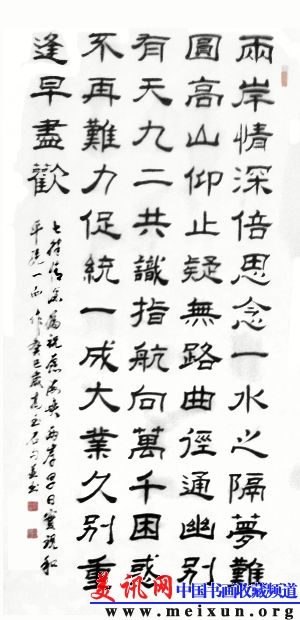 兩岸情深倍思念一水之隔夢難
圓高山仰止疑無路曲徑通幽別
有天九二共識指航向萬千困惑
不再難力促統一成大業久別重
逢早盡歡
為祝愿海峽兩岸早日實現和
平統一而作癸巳歲
美讯网 中国书画收藏频道
www.meixun.org